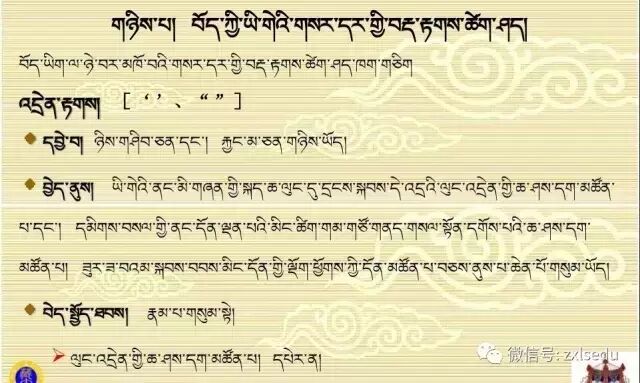 གཉིས་པ། བོད་ཀྱི་ཡི་གེའི་གསར་དར་གྱི་བརྡ་རྟགས་ཚེག་ཤད།
བོད་ཡིག་ལ་ཉེ་བར་མཁོ་བའི་གསར་དར་གྱི་བརྡ་རྟགས་ཚེག་ཤད་ཁག་གཅིག
འདྲེན་རྟགས། [ ‘ ’ 、 “ ” ]
དབྱེ་བ། ཉིས་གཤིབ་ཅན་དང་། རྐྱང་མ་ཅན་གཉིས་ཡོད།
བྱེད་ནུས། ཡི་གེའི་ནང་མི་གཞན་གྱི་སྐད་ཆ་ལུང་དུ་དྲངས་སྐབས་དེ་འདྲའི་ལུང་འདྲེན་གྱི་ཆ་ཤས་དག་མཚོན་
པ་དང་། དམིགས་བསལ་གྱི་ནང་དོན་ལྡན་པའི་མིང་ཚིག་གམ་གཙོ་གནད་གསལ་སྟོན་དགོས་པའི་ཆ་ཤས་དག་
མཚོན་པ། ཟུར་ཟ་བའམ་སྐབས་བབས་མིང་དོན་གྱི་ལྡོག་ཕྱོགས་ཀྱི་དོན་མཚོན་པ་བཅས་ནུས་པ་ཆེན་པོ་གསུམ་ཡོད།
བེད་སྤྱོད་ཐབས། རྣམ་པ་གསུམ་སྟེ།
ལུང་འདྲེན་གྱི་ཆ་ཤས་དག་མཚོན་པ། དཔེར་ན།
微信号: zxlsedu